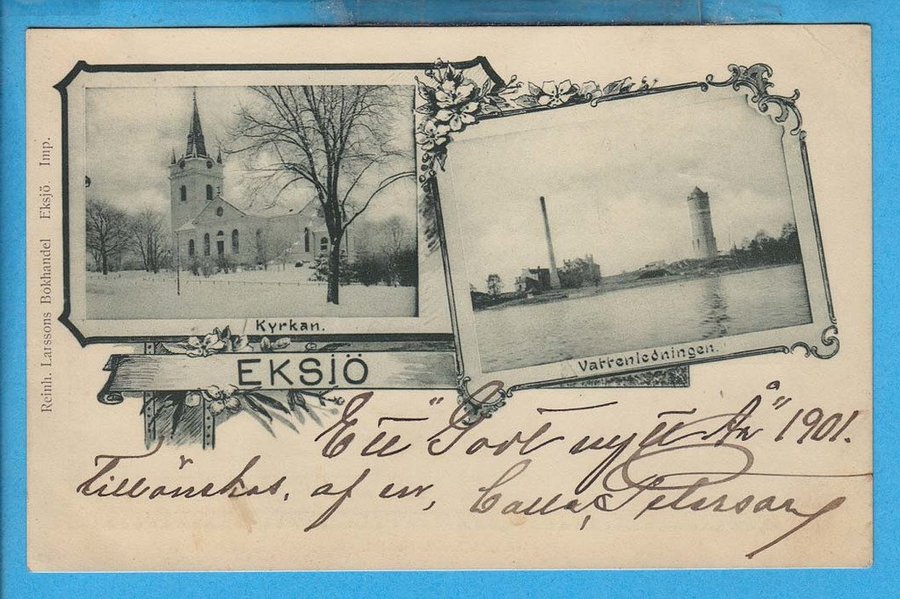 Reinh. Larssons Bokhandel Eksjö. Imp.
Kyrkan.
Vattenledningen.
EKSJÖ
Ett "Godt nytt År" 1901.
Tillönskas, af en,